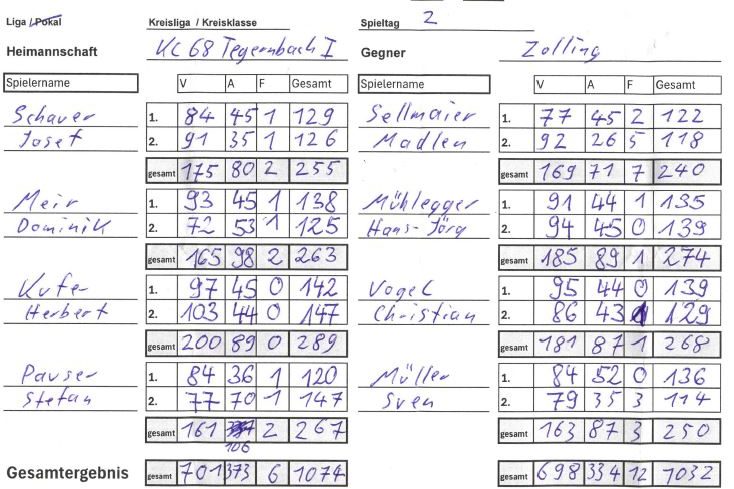 Liga / Pokal Kreisliga / Kreisklasse Spieltag 2
Heimannschaft KC 68 Tegernbach I Gegner Zolling
Spielername V A F Gesamt Spielername V A F Gesamt
Schauer 1. 84 45 1 129 Sellmaier 1. 77 45 2 122
Josef 2. 91 35 1 126 Madlen 2. 92 26 5 118
gesamt 175 80 2 255 gesamt 169 71 7 240
Meir 1. 93 45 1 138 Mühlegger 1. 91 44 1 135
Dominik 2. 72 53 1 125 Hans-Jörg 2. 94 45 0 139
gesamt 165 98 2 263 gesamt 185 89 1 274
Kufer 1. 97 45 0 142 Vogel 1. 95 44 0 139
Herbert 2. 103 44 0 147 Christian 2. 86 43 1 129
gesamt 200 89 0 289 gesamt 181 87 1 268
Pauser 1. 84 36 1 120 Müller 1. 84 52 0 136
Stefan 2. 77 70 1 147 Sven 2. 79 35 3 114
gesamt 161 106 2 267 gesamt 163 87 3 250
Gesamtergebnis gesamt 701 373 6 1074 gesamt 698 334 12 1032